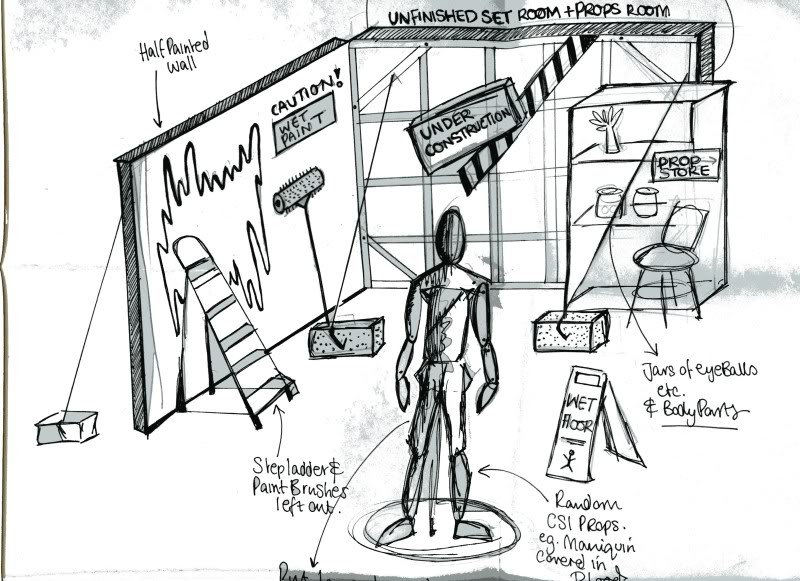 UNFINISHED SET ROOM + PROPS ROOM
Half Painted
Wall
CAUTION!
WET
PAINT
UNDER
CONSTRUCTION
PROP
STORE
Jars of eyeBalls
etc.
& Body Parts
WET
FLOOR
Stepladder &
Paint Brushes
left out.
Random
CSI Props.
eg. Maniquin
covered in
Blood